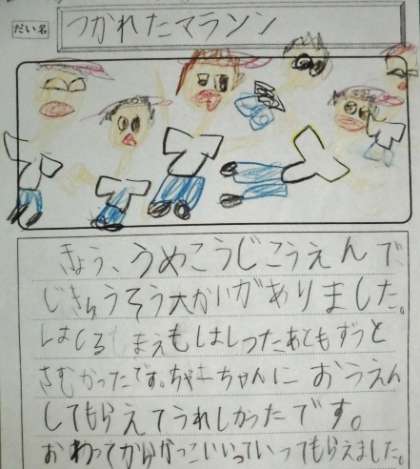 だい名
つかれたマラソン
きょう、うめこうじこうえんで
じきゅうそう大かいがありました。
はしるまえもはしったあともずっと
さむかったです。ちゃーちゃんに おうえん
してもらえてうれしかったです。
おわってからかっこいいっていってもらえました。